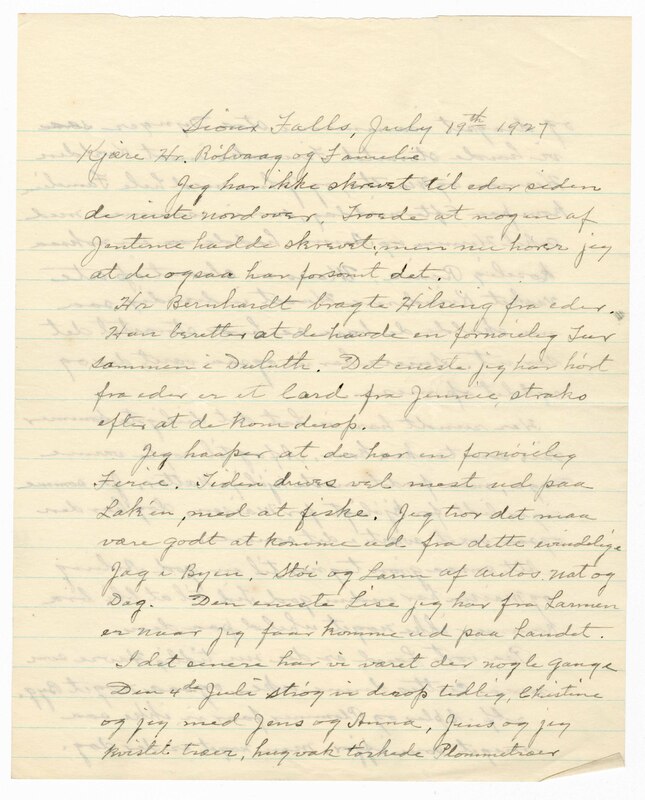 Sioux Falls, July 19th 1927
Kjære Hr. Rölvaag og Famelie
Jeg har ikke skrevet til eder siden
de reiste nordover, Troede at nogen af
Jenterne hadde skrevet, men nu hører jeg
at de ogsaa har forsömt det.
Hr Bernhardt bragte Hilsing fra eder.
Han beretter at de havde en fornöieleg Tur
sammen i Duluth. Det eneste jeg har hört
fra eder er et Card fra Jennie, straks
efter at de kom derop.
Jeg haaper at de har en fornöieleg
Ferie. Tiden drives vel mest ud paa
Lak'en, med at fiske. Jeg tror det maa
være godt at komme ud fra dette evindelige
Jag i Byen, - Stöi og Larm af Autos Nat og
Dag. Den eneste Lise jeg har fra Larmen
er naar jeg faar komme ud paa Landet.
I det senere har vi været der nogle gange
Den 4de Juli strög vi derop tidlig, Christine
og jeg med Jens og Anna, Jens og jeg
kvistet træer, hug væk törkede Plommetræer